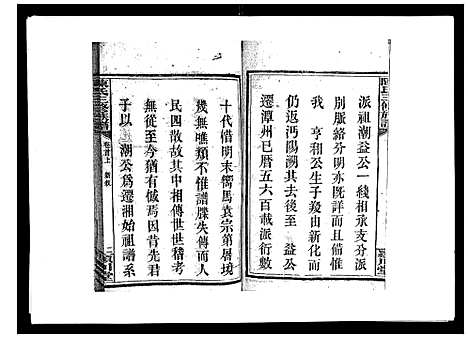 陳氏三修族譜
派祖潮益公一綫相承支分派
別脈絡分明亦既詳而且備惟
我 亨和公生子發由新化而
仍返沔陽溯其去後至 益公
遷潭州已曆五六百載派衍數
十代惜明末獨馬袁宗第屠境
幾無噍類不惟譜牒失傳而人
民四散故其中相傳世世稽考
無從至今猶有憾焉因昔先君
子以 潮公為遷湘始祖譜系
陳氏三修族譜
卷首上 新敘
二